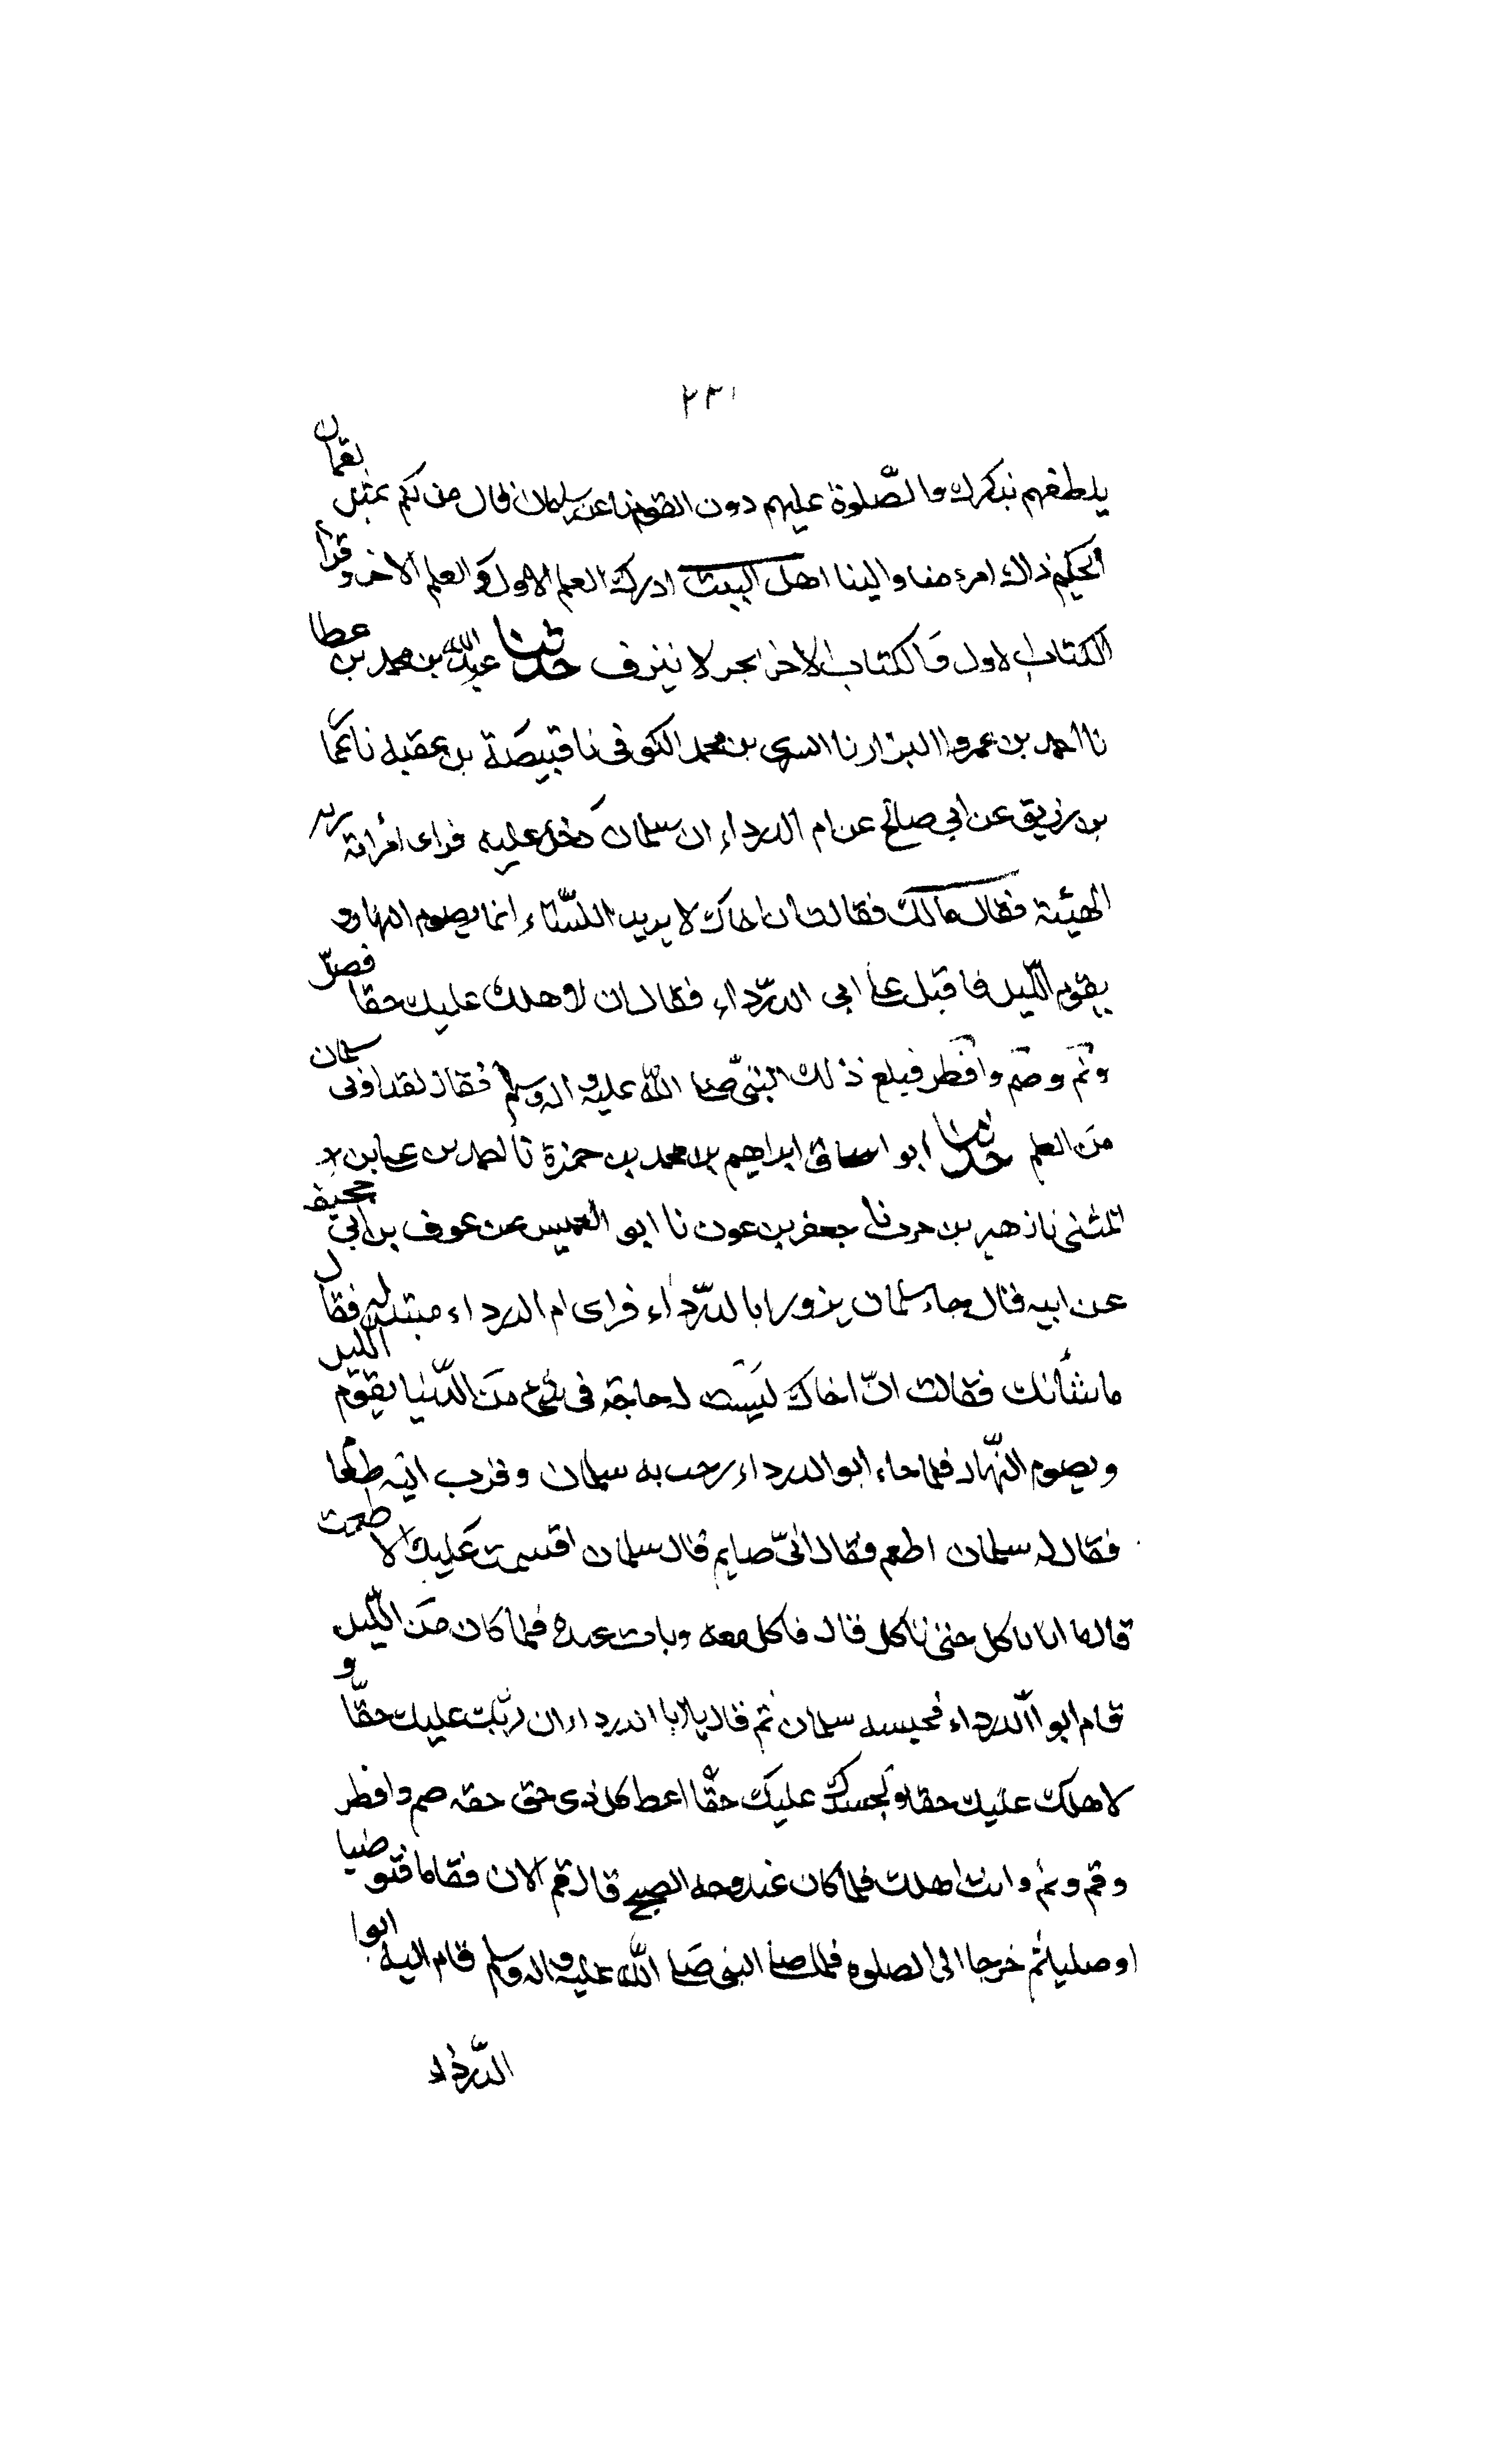 ٢٣١
يلطفهم بذكرك والصّلوة عليهم دون القوم نا عن سلمان قال من لكم بمثل لقمان
الحكيم ذلك امرء منا والينا اهل البيت ادرك العلم الاول و العلم الاخر وقرأ
الكتاب الاول وَالكتاب الاخر بحر لا ينزف حدثنا عبد الله بن محمد بن عطا
نا احمد بن عمروا البزار نا السرى بن محمد الكوفى نا قبيصَة بن عقبه نا عمّا
بن رزيق عن ابي صالح عن ام الدرداء ان سلمان دخل عليه فراى امراته رثه
الهيئة فقال مالك فقالت ان اخاك لا يريد النّساء انما يصوم النهار و
يقوم اللّيل فاقبل على ابى الدّرداء فقال ان لاهلك عليك حقا فصلّ
ونم وصم وافطر فبلغ ذلك النبىّ صلى الله عليه و اله وسلم فقال لقد اوتى سلمان
من العلم حدثنا ابو اسحاق ابراهيم بن محمد بن حمزة نا احمد بن على بن
المثنى نا زهير بن حرب نا جعفر بن عون نا ابو العميس عن عوف بن ابي جحيفه
عن ابيه قال جاء سلمان يزور ابا الدّرداء فراى ام الدرداء مبتذله فقال
ما شأنك فقالت انّ اخاك ليست له حاجة فى شىء من الدّنيا يقوم الليل
ويصوم النّهار فلما جاء ابو الدرداء رحب به سلمان وقرب اليه طعا
فقال له سلمان اطعم فقال انّى صايم قال سلمان اقسمت عَليك الا طعمت
قال ما انا باكل حتى تاكل قال فاكل معه وبات عنده فلما كان من اللّيل
قام ابو الدرداء فحبسه سلمان ثم قال يا ابا الدرداء ان لربّك عليك حقّا و
لاهلك عليك حقا ولجسدك عليك حقّا اعط كل ذى حق حقه صم وافطر
وقم ونم وائت اهلك فلما كان عند وجه الصبح قال قم الان فقاما فتوضيا
وصليا ثم خرجا الى الصلوه فلما صلى النبى صَلى الله عليه واله وسلم قام اليه ابوا
الدّرداء